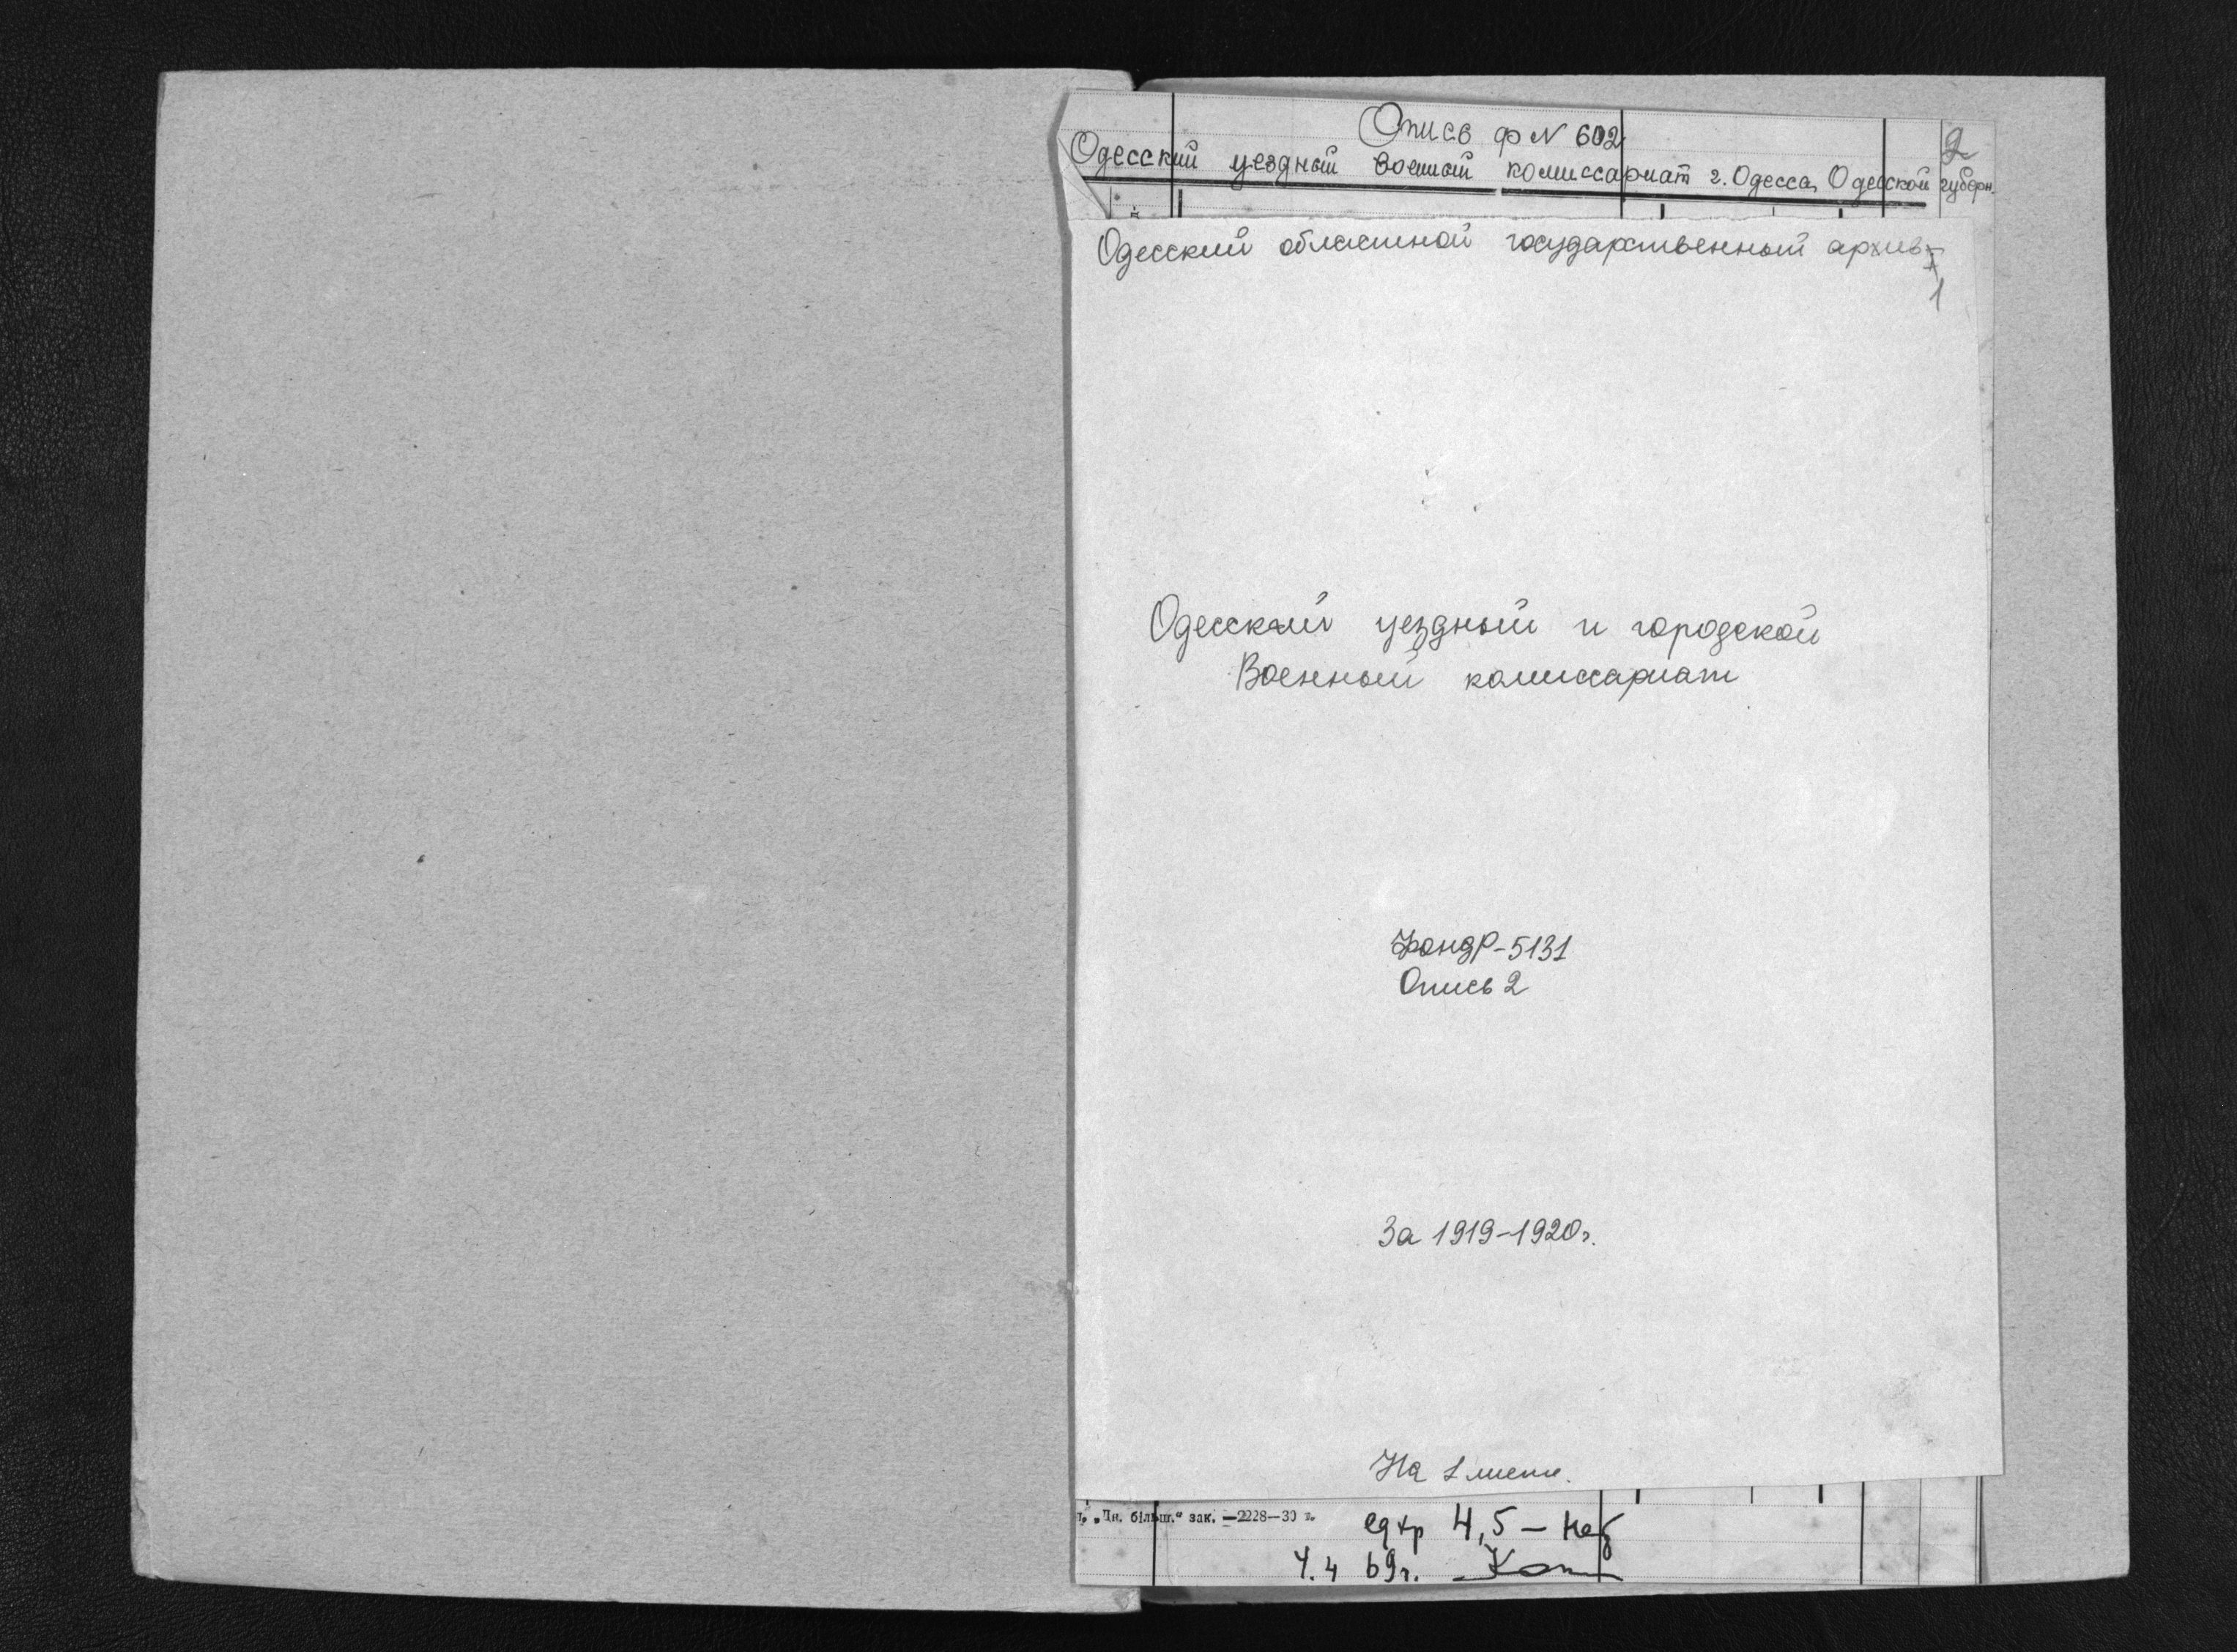 Опись ф N 602
2
Одесский уездный военный комиссариат г. Одесса, Одесской губерн.
Одесский областной государственный архив
1
Одесский уездный и городской
Военный комиссариат
Фонд Р-5131
Опись 2
За 1919-1920г.
На 1 листе.
„Дн. більш." зак. —2228—30 г.
ед хр 4,5 —
4.4 69г.